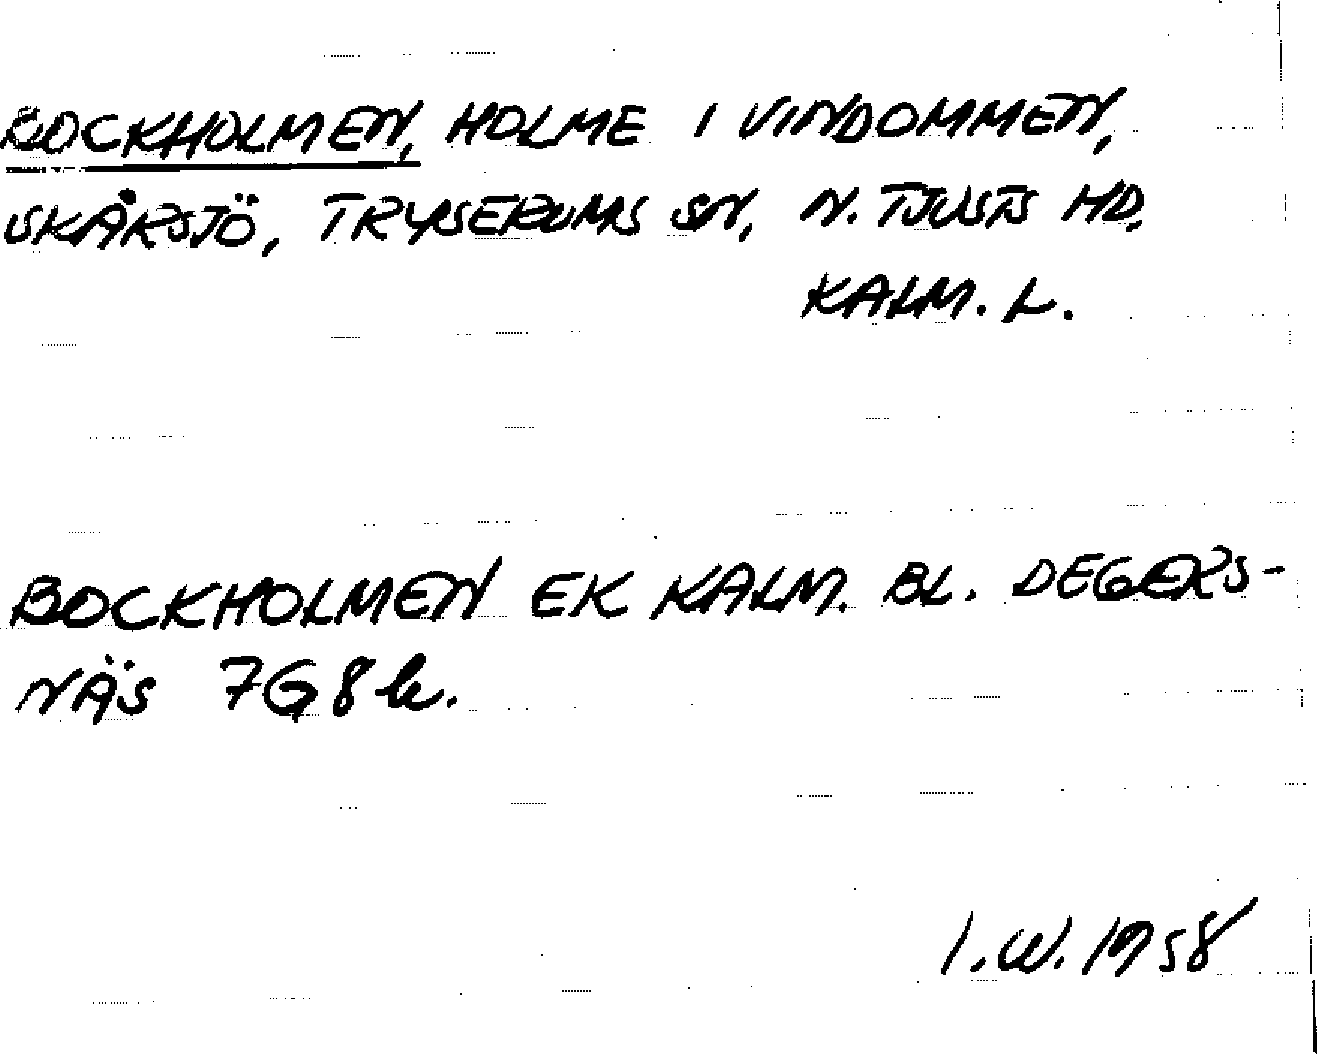 BOCKHOLMEN, HOLME I VINDOMMEN,
SKÅRSJÖ, TRYSERUMS SN, N. TJUSTS HD,
KALM. L.
BOCKHOLMEN EK KALM. BL. DEGERS-
NÄS 7G8k.
I.W. 1958